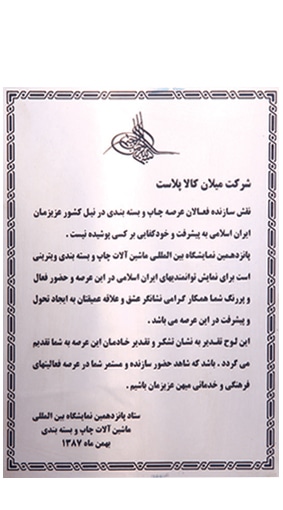 شرکت میلان کالا پلاست
نقش سازنده فعـالان عرصه چاپ و بسته بندی در نیل کشور عزیزمان
ایران اسلامی به پیشرفت و خودکفایی بر کسی پوشیده نیست .
پانزدهمین نمایشگاه بین المللی ماشین آلات چاپ و بسته بندی ویترینی
است برای نمایش توانمندیهای ایران اسلامی در این عرصه و حضور فعال
و پررنگ شما همکار گرامی نشانگر عشق و علاقه عمیقتان به ایجاد تحول
و پیشرفت در این عرصه می باشد .
این لوح تقدیر به نشان تشکر و تقدیر خادمان این عرصه به شما تقدیم
می گردد . باشد که شاهد حضور سازنده و مستمر شما در عرصه فعالیتهای
فرهنگی و خدماتی میهن عزیزمان باشیم .
ستاد پانزدهمین نمایشگاه بین المللی
ماشین آلات چاپ و بسته بندی
بهمن ماه ۱۳۸۷